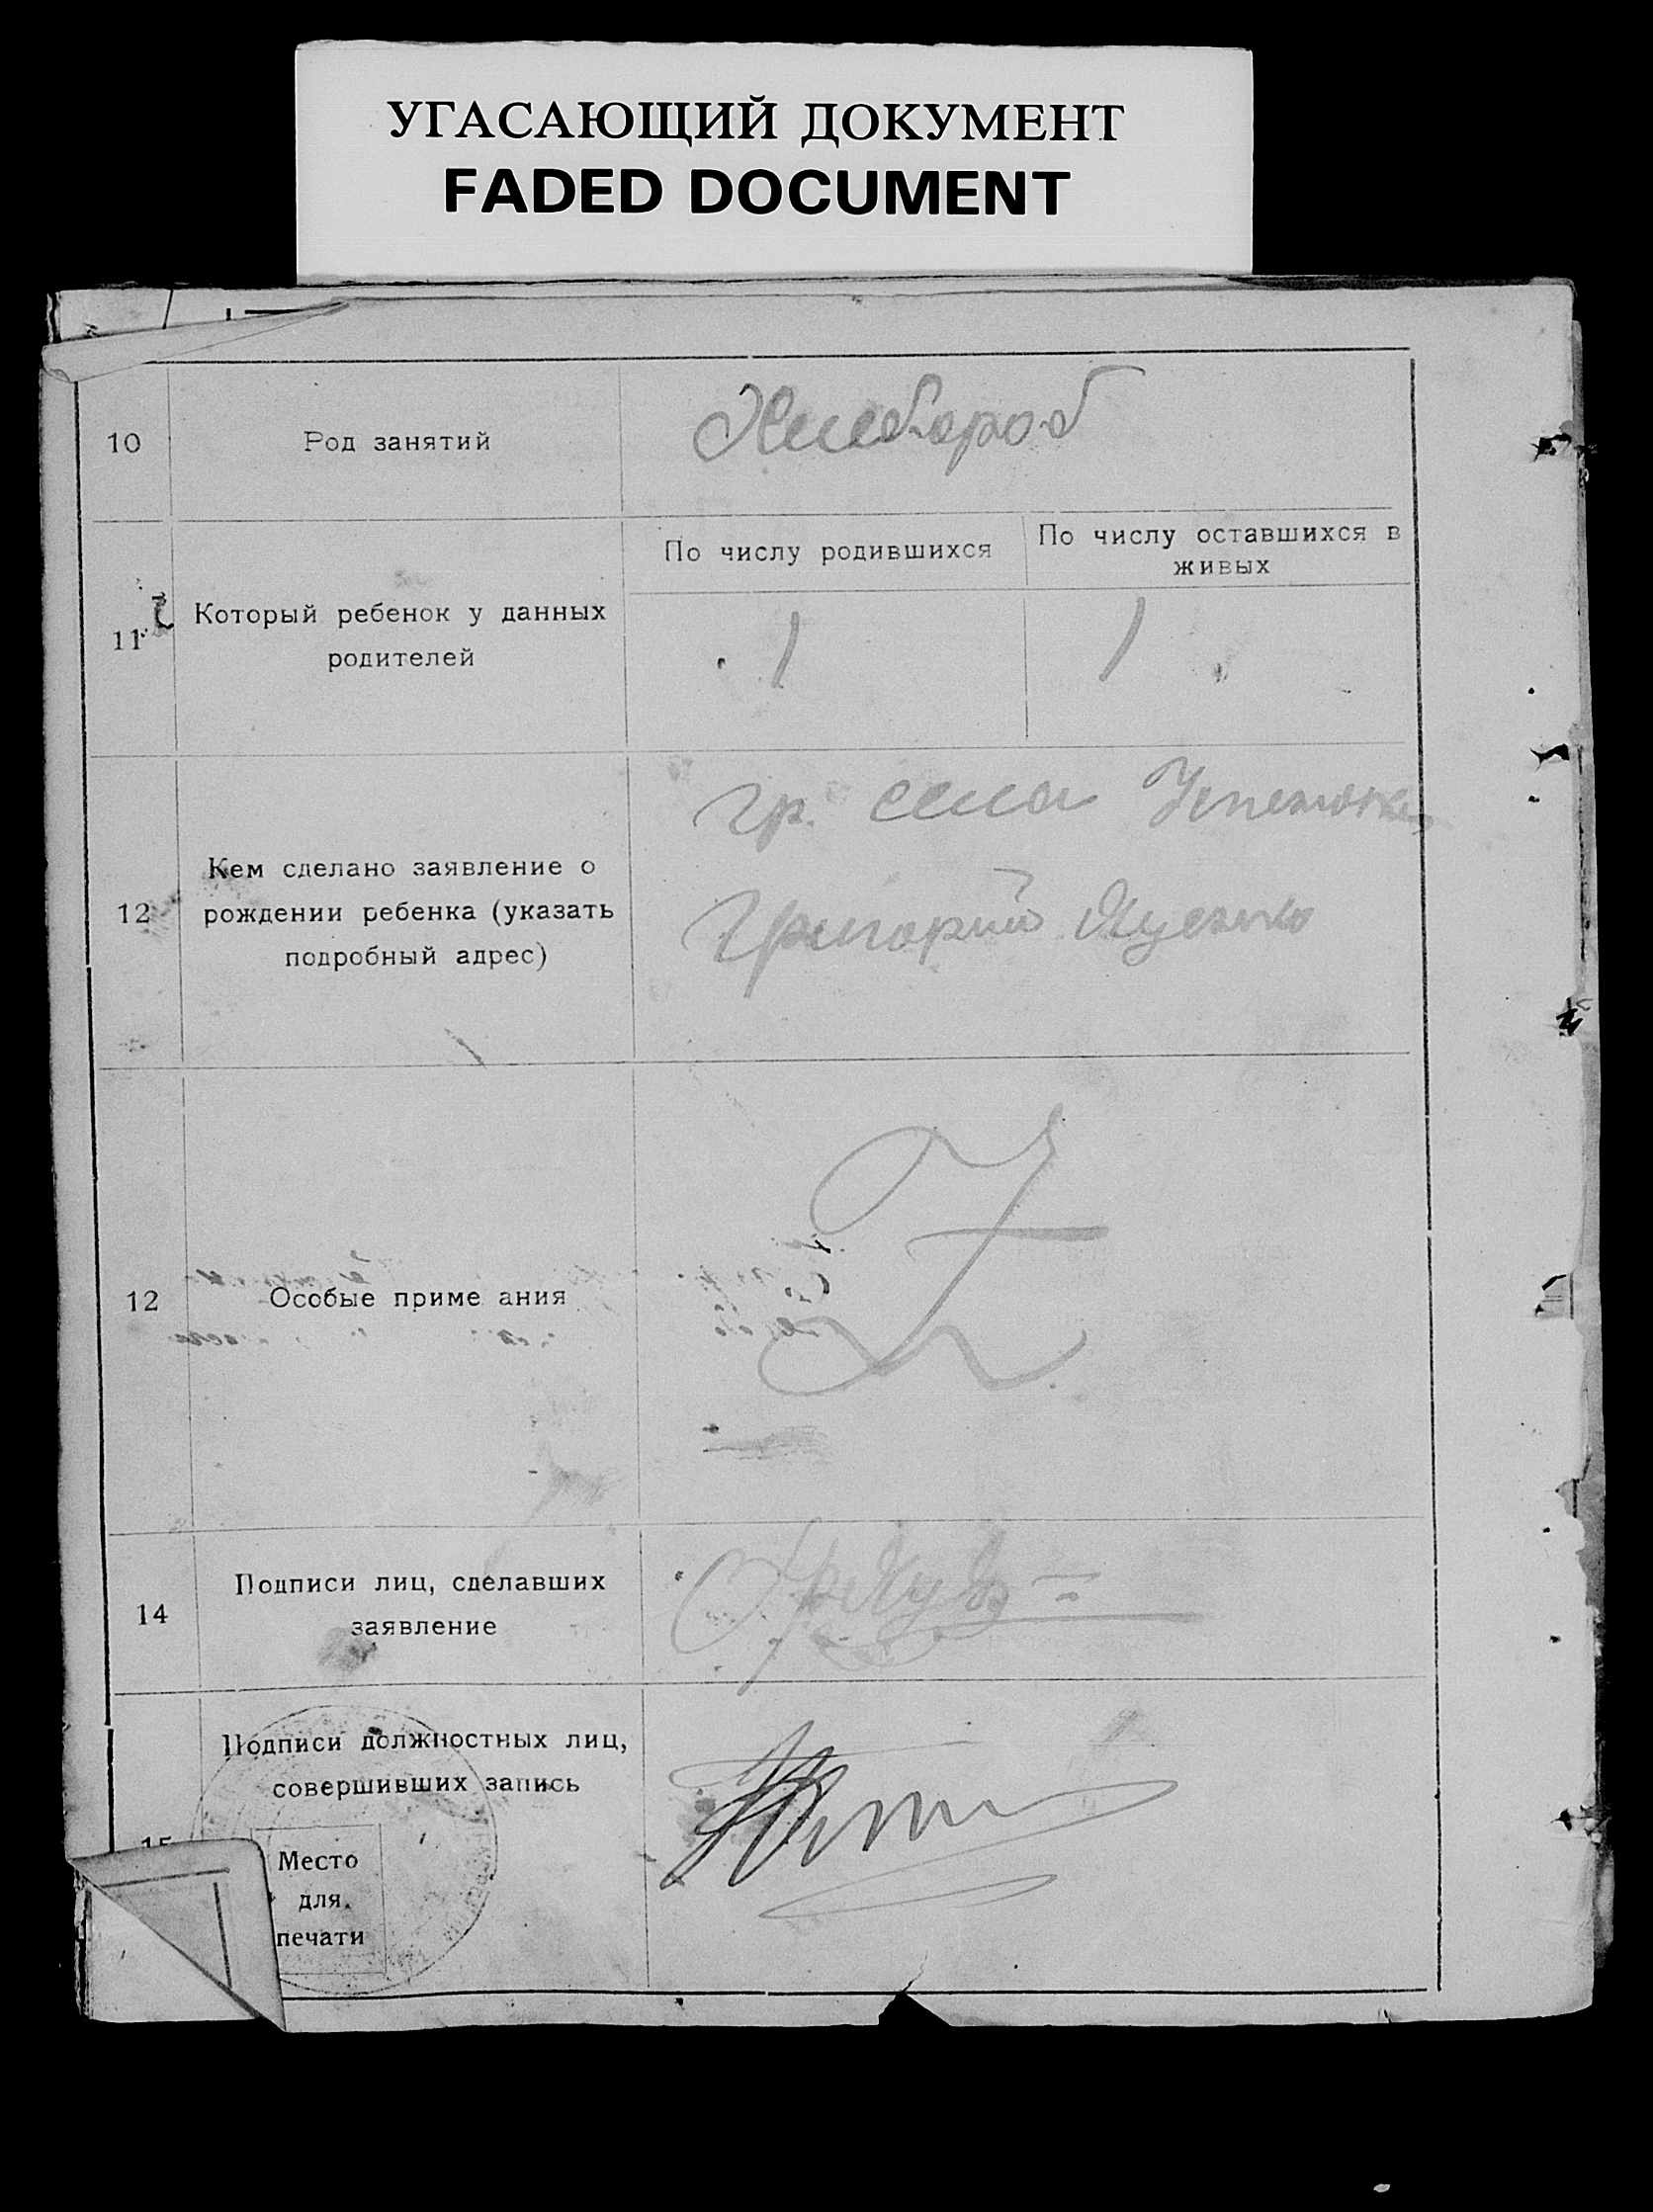 УГАСАЮЩИЙ ДОКУМЕНТ
FADED DOCUMENT
10
Род занятий
Хлебороб
11
Который ребенок у данных
родителей
По числу родившихся
По числу оставшихся в
живых
1
1
12
Кем сделано заявление о
рождении ребенка (указать
подробный адрес)
гр. села
Григорий
12
Особые приме ания
14
Подписи лиц, сделавших
заявление
15
Подписи должностных лиц,
совершивших запись
Место
для
печати